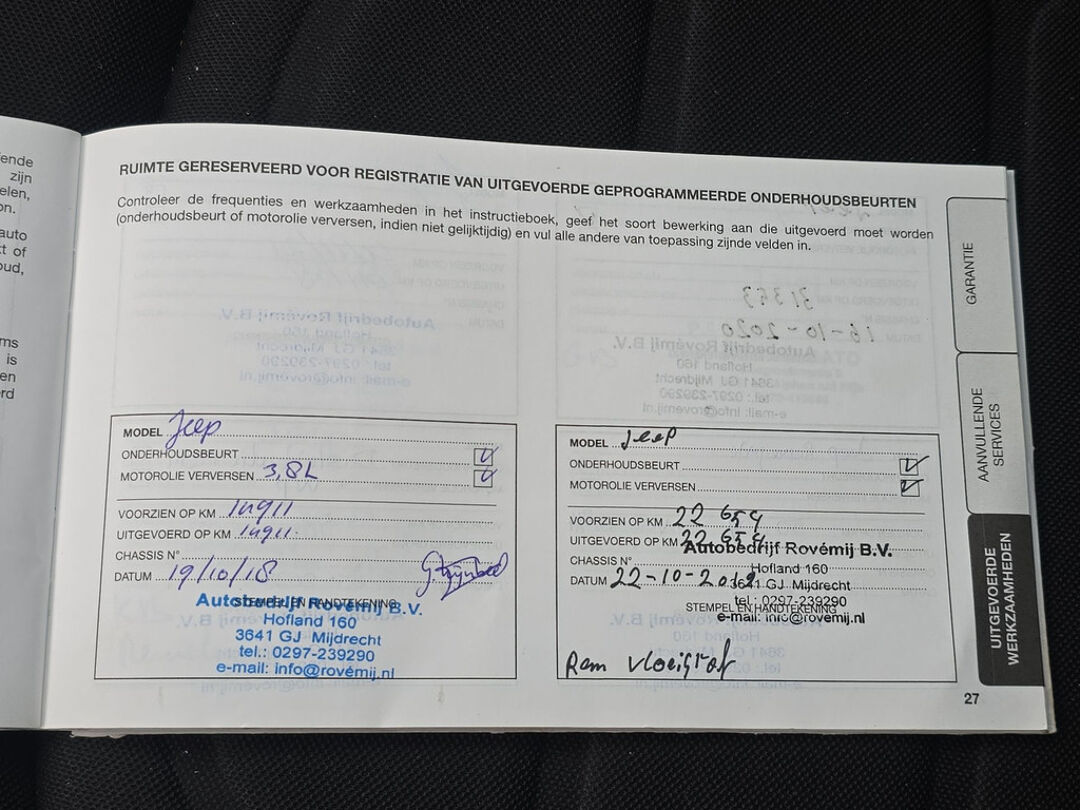 ende
zijn
elen,
on.
auto
t of
oud,
ms
is
en
rd
RUIMTE GERESERVEERD VOOR REGISTRATIE VAN UITGEVOERDE GEPROGRAMMEERDE ONDERHOUDSBEURTEN
Controleer de frequenties en werkzaamheden in het instructieboek, geef het soort bewerking aan die uitgevoerd moet worden
(onderhoudsbeurt of motorolie verversen, indien niet gelijktijdig) en vul alle andere van toepassing zijnde velden in.
MODEL Jeep
ONDERHOUDSBEURT
MOTOROLIE VERVERSEN 3,8L
VOORZIEN OP KM 14911
UITGEVOERD OP KM 14911
CHASSIS N°
DATUM 19/10/18
STEMPEL EN HANDTEKENING
Autobedrijf Rovémij B.V.
Hofland 160
3641 GJ Mijdrecht
tel.: 0297-239290
e-mail: info@rovémij.nl
MODEL Jeep
ONDERHOUDSBEURT
MOTOROLIE VERVERSEN
VOORZIEN OP KM 22 654
UITGEVOERD OP KM 22 654
CHASSIS N°
DATUM 22-10-2019
Autobedrijf Rovémij B.V.
Hofland 160
3641 GJ Mijdrecht
tel.: 0297-239290
STEMPEL EN HANDTEKENING
e-mail: info@rovemij.nl
Rem vloeistof
GARANTIE
AANVULLENDE
SERVICES
UITGEVOERDE
WERKZAAMHEDEN
27